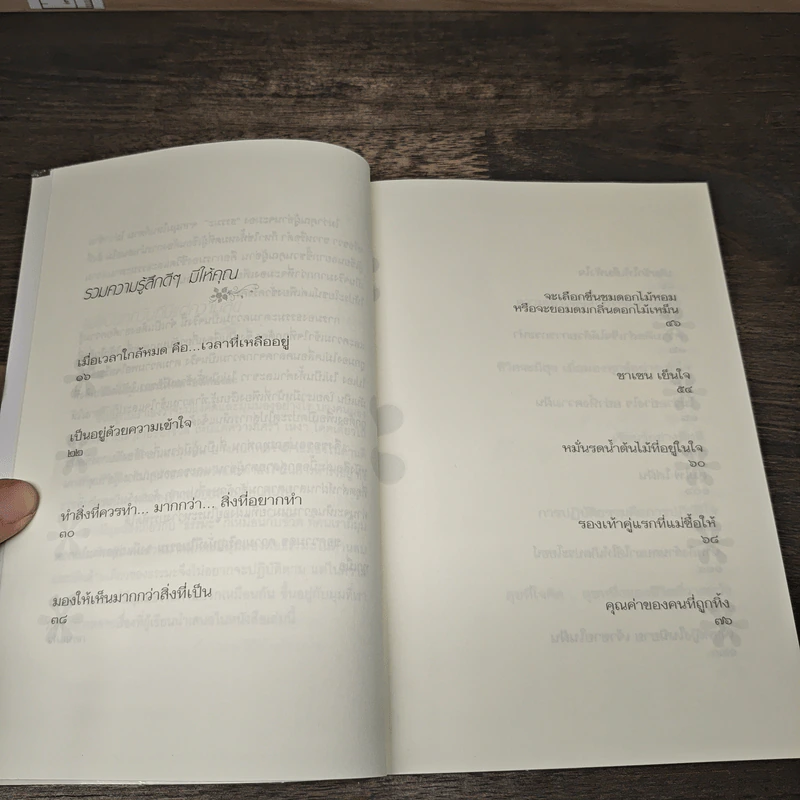 รวมความรู้สึกดีๆ มีให้คุณ
เมื่อเวลาใกล้หมด คือ...เวลาที่เหลืออยู่
๑๖
เป็นอยู่ด้วยความเข้าใจ
๒๒
ทำสิ่งที่ควรทำ... มากกว่า... สิ่งที่อยากทำ
๓๐
มองให้เห็นมากกว่าสิ่งที่เป็น
๓๘
จะเลือกชื่นชมดอกไม้หอม
หรือจะยอมดมกลิ่นดอกไม้เหม็น
๔๖
ชาเซน เย็นใจ
๕๔
หมั่นรดน้ำต้นไม้ที่อยู่ในใจ
๖๐
รองเท้าคู่แรกที่แม่ซื้อให้
๖๘
คุณค่าของคนที่ถูกทิ้ง
๗๖